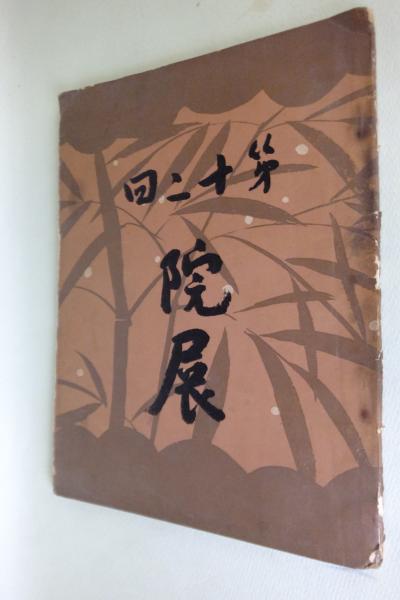 第十二回
院展